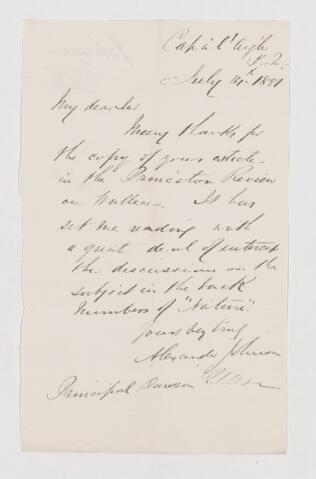 Cap à l'Aigle
P.Q.
July 14th 1881
My dear Sir
Many thanks for
the copy of your article
in the Princeton Review
on Wallace. It has
set me reading with
a great deal of interest
the discussions on the
subject in the back
numbers of "Nature".
Yours very truly
Alexander Johnson
Principal Dawson